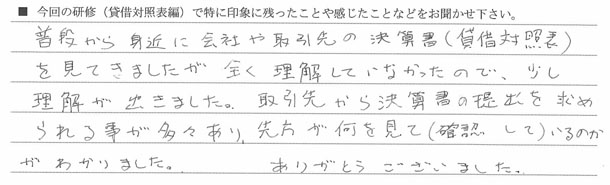 ■ 今回の研修（貸借対照表編）で特に印象に残ったことや感じたことなどをお聞かせ下さい。
普段から身近に会社や取引先の決算書（貸借対照表）
を見てきましたが全く理解していなかったので、少し
理解が出きました。取引先から決算書の提出を求め
られる事が多々あり、先方が何を見て（確認して）いるのか
がわかりました。 ありがとうございました。